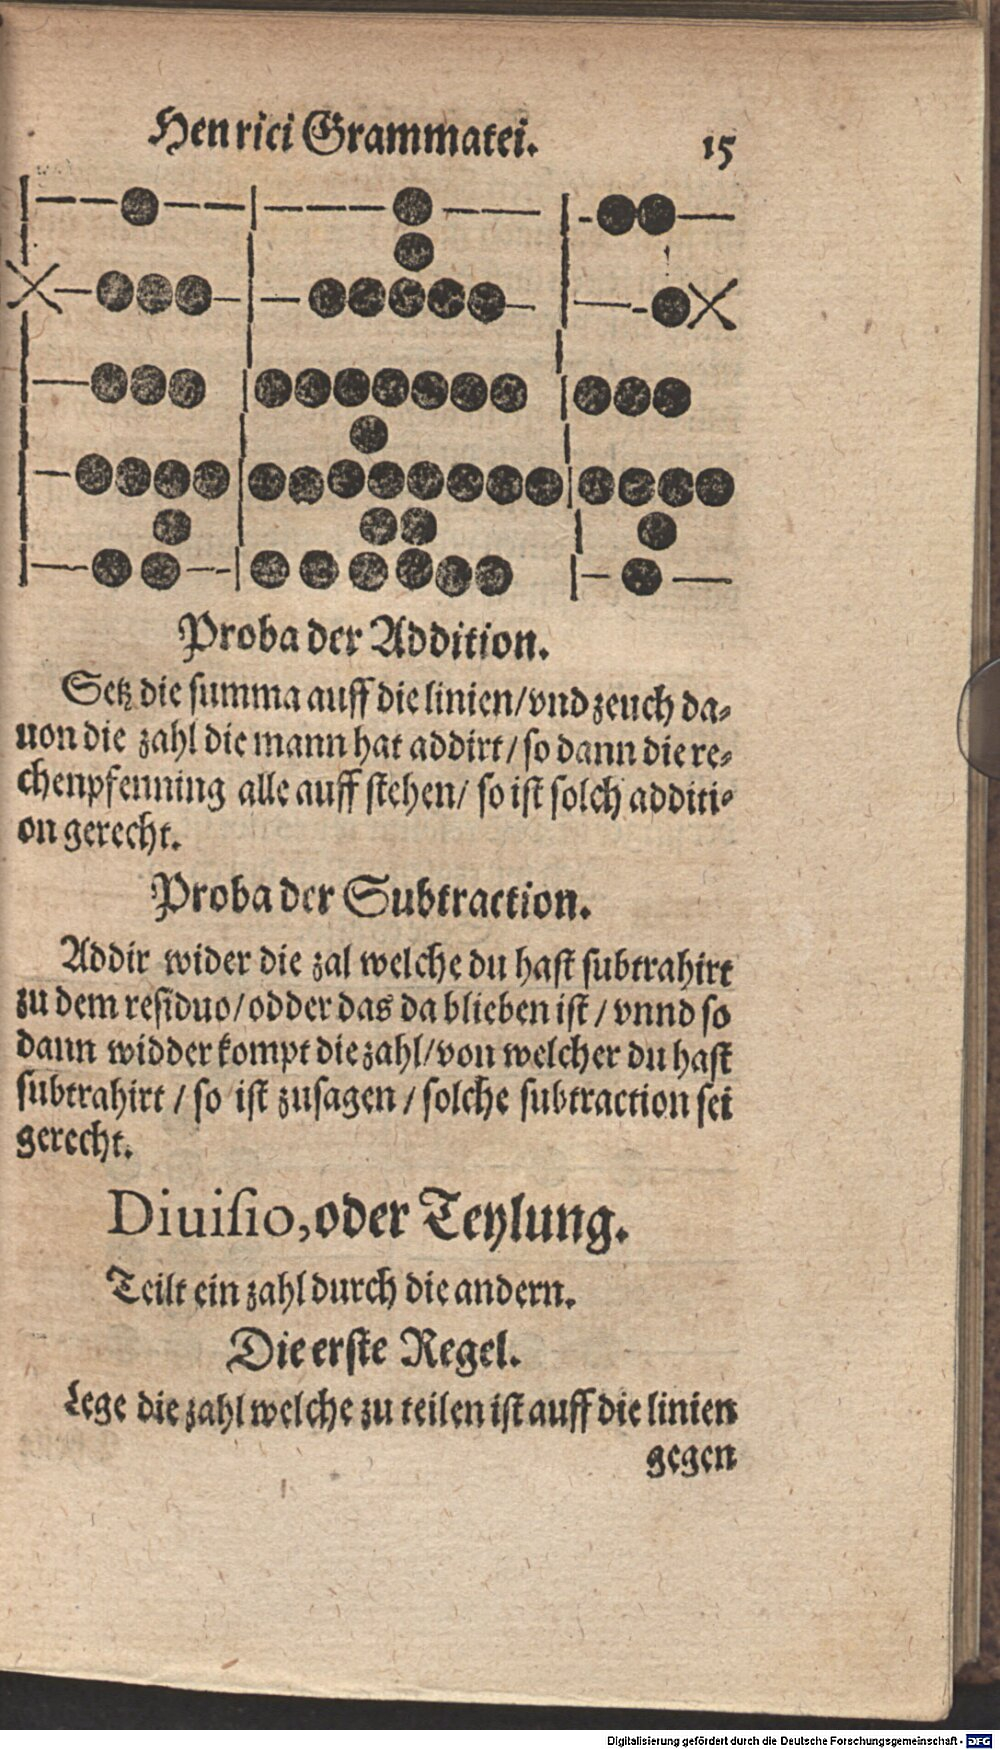 Henrici Grammatei. 15
Proba der Addition.
Setz die summa auff die linien/vnd zeuch da⸗
uon die zahl die mann hat addirt/so dann die re⸗
chenpfenning alle auff stehen/ so ist solch additi⸗
on gerecht.
Proba der Subtraction.
Addir wider die zal welche du hast subtrahirt
zu dem residuo/odder das da blieben ist/vnnd so
dann widder kompt die zahl/von welcher du hast
subtrahirt/so ist zusagen/solche subtraction sei
gerecht.
Diuisio,oder Teylung.
Teilt ein zahl durch die andern.
Die erste Regel.
Lege die zahl welche zu teilen ist auff die linien
gegen
Digitalisierung gefördert durch die Deutsche Forschungsgemeinschaft - DFG